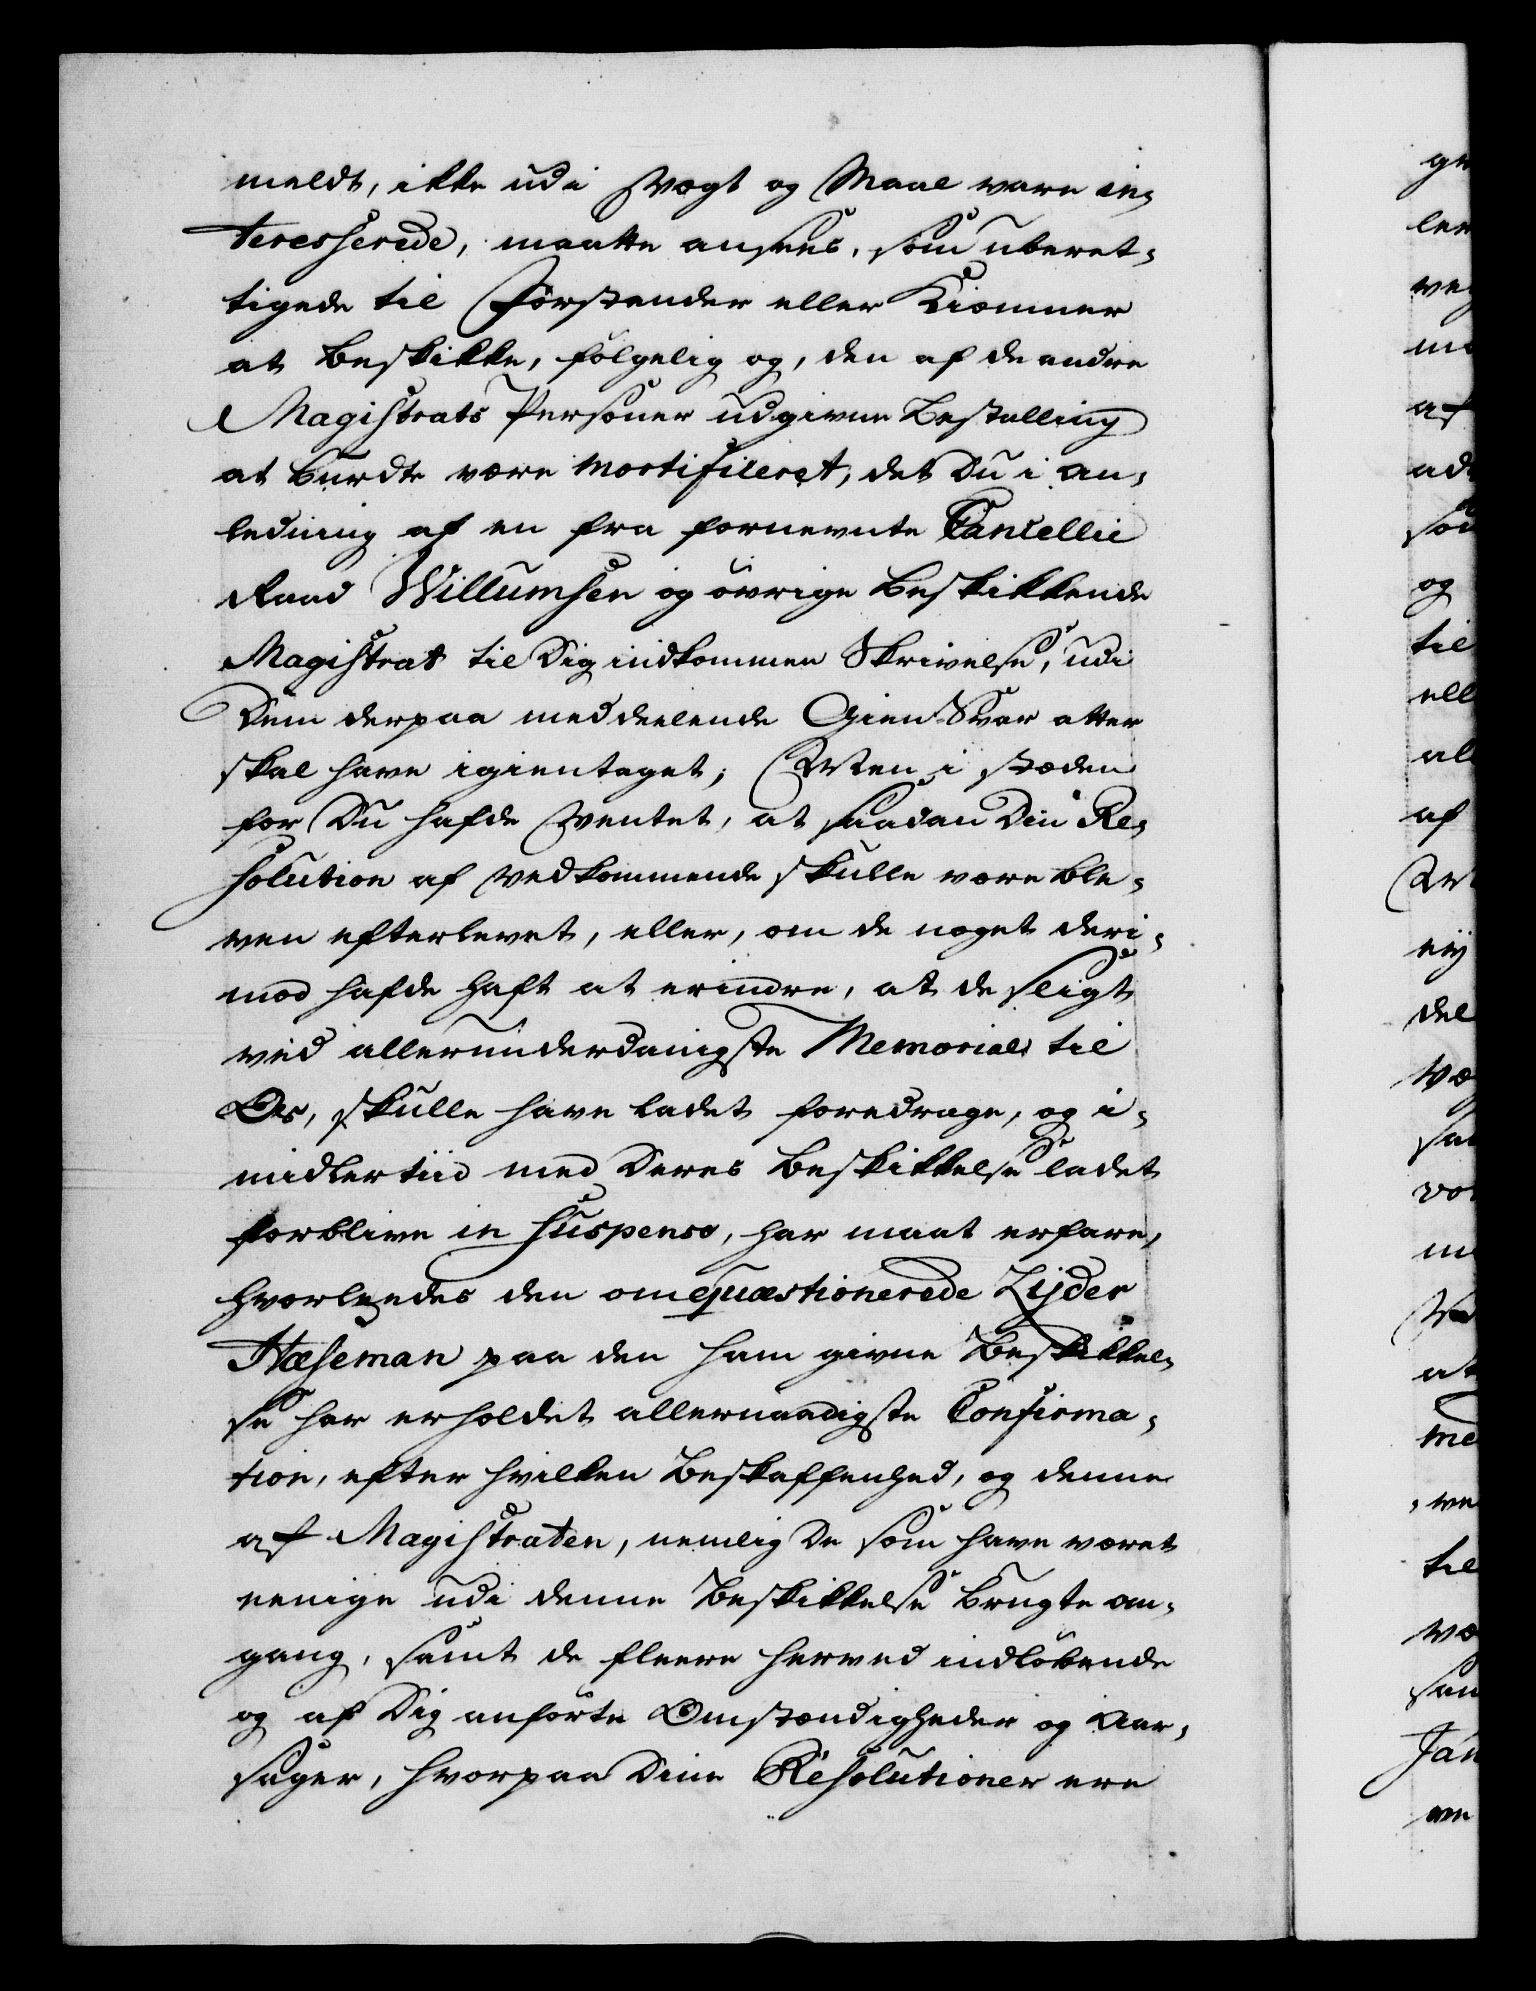 meldt, ikke udi Vægt og Maal vare in-
teresserede, maatte ansees, som uberet-
tigede til Forstander eller Kiæmner
at beskikke, følgelig og, den af de andre
Magistrats Personer udgivne Bestalling
at burdte være mortificeret, det Du i An-
ledning af en fra fornevnte Cancellie
Raad Willumsen og øvrige beskikkende
Magistrat til Dig indkommen Skrivelse, udi
Dem derpaa meddeelende Gien-Svar atter
skal have igientaget; Men i stæden
for Du hafde ventet, at saadan Din Re-
solution af vedkommende skulle være ble-
ven efterlevet, eller, om de noget deri-
mod hafde haft at erindre, at de sligt
ved allerunderdanigste Memorial til
Os, skulle have ladet foredrage, og i-
midlertiid med Deres Beskikkelse ladet
forblive in Suspenso, har maat erfare,
hvorledes den omquæstionerede Zijder
Hæseman paa den ham givne Beskikkel-
se har erholdet allernaadigste Confirma-
tion, efter hvilken Beskaffenhed, og denne
af Magistraten, nemlig De som have været
eenige udi denne Beskikkelse brugte om-
gang, samt de fleere herved indløbende
og af Dig anførte Omstændigheder og Aar-
sager, hvorpaa Dine Resolutioner ere